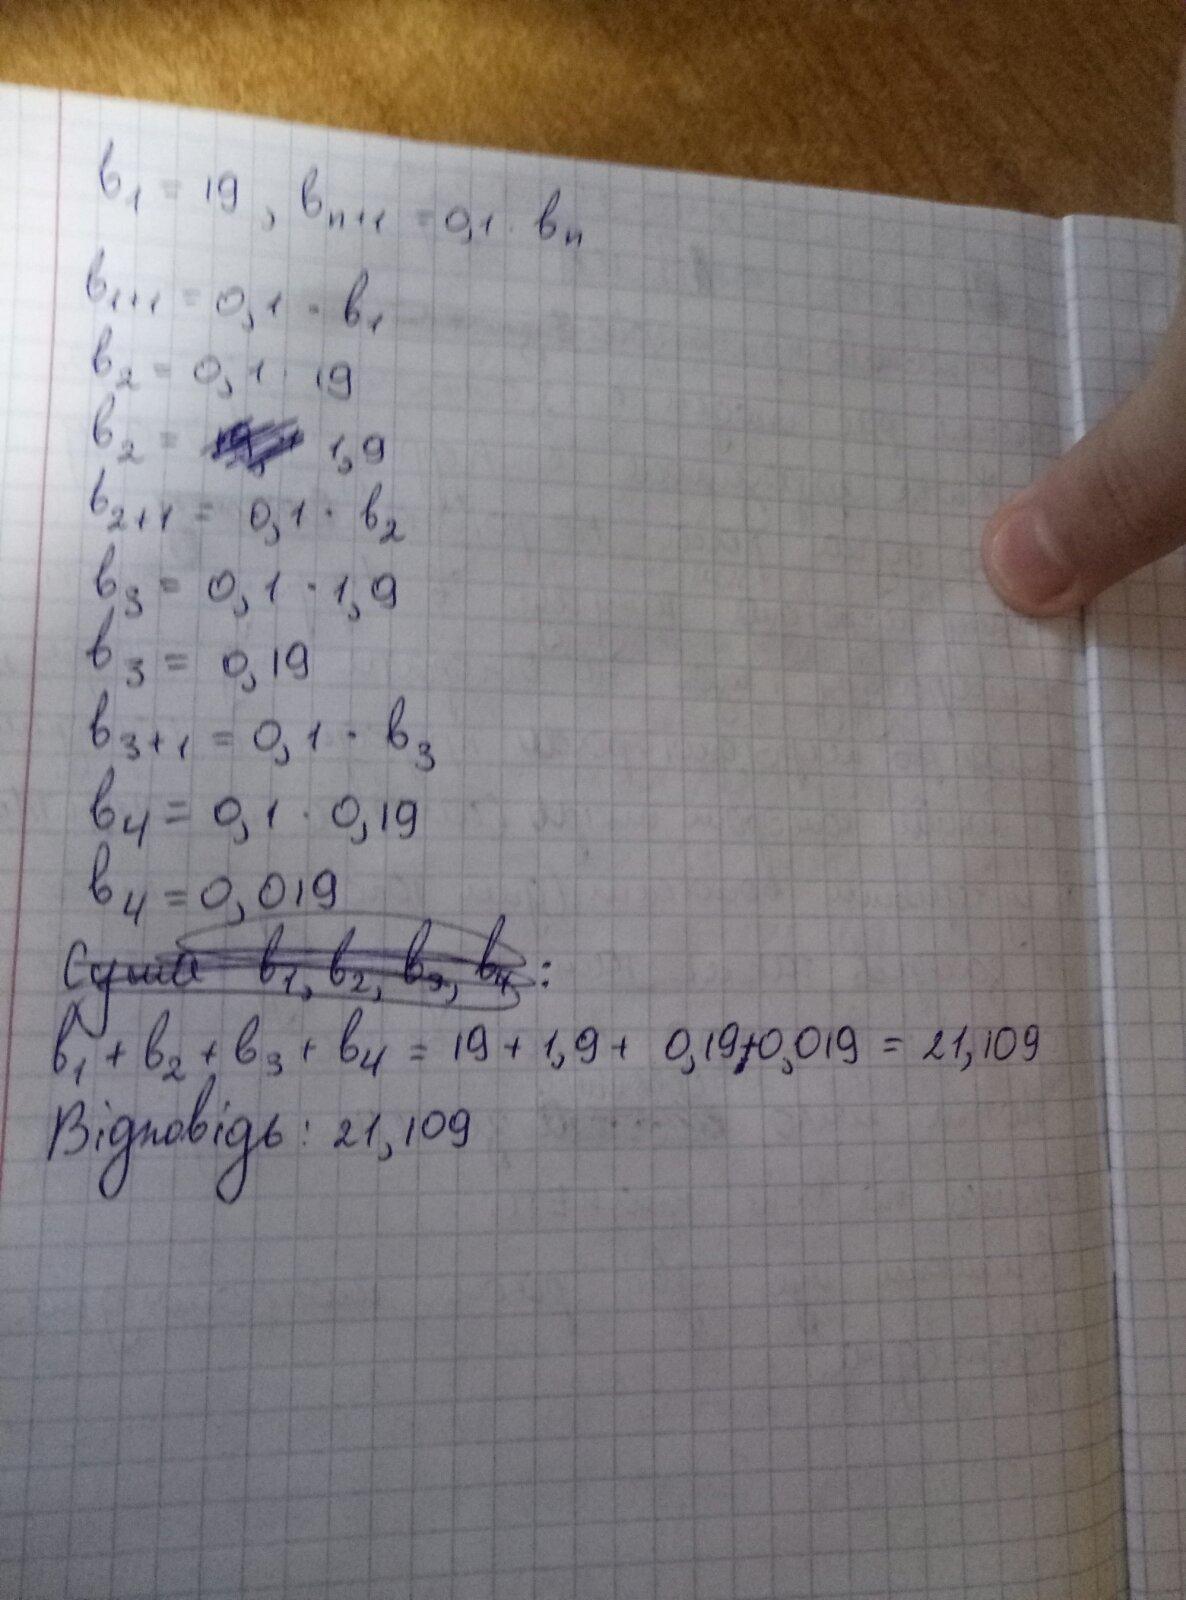 b₁ = 19, bₙ₊₁ = 0,1 · bₙ
b₁₊₁ = 0,1 · b₁
b₂ = 0,1 · 19
b₂ = 1,9
b₂₊₁ = 0,1 · b₂
b₃ = 0,1 · 1,9
b₃ = 0,19
b₃₊₁ = 0,1 · b₃
b₄ = 0,1 · 0,19
b₄ = 0,019
Сума b₁, b₂, b₃, b₄:
b₁ + b₂ + b₃ + b₄ = 19 + 1,9 + 0,19 + 0,019 = 21,109
Відповідь: 21,109